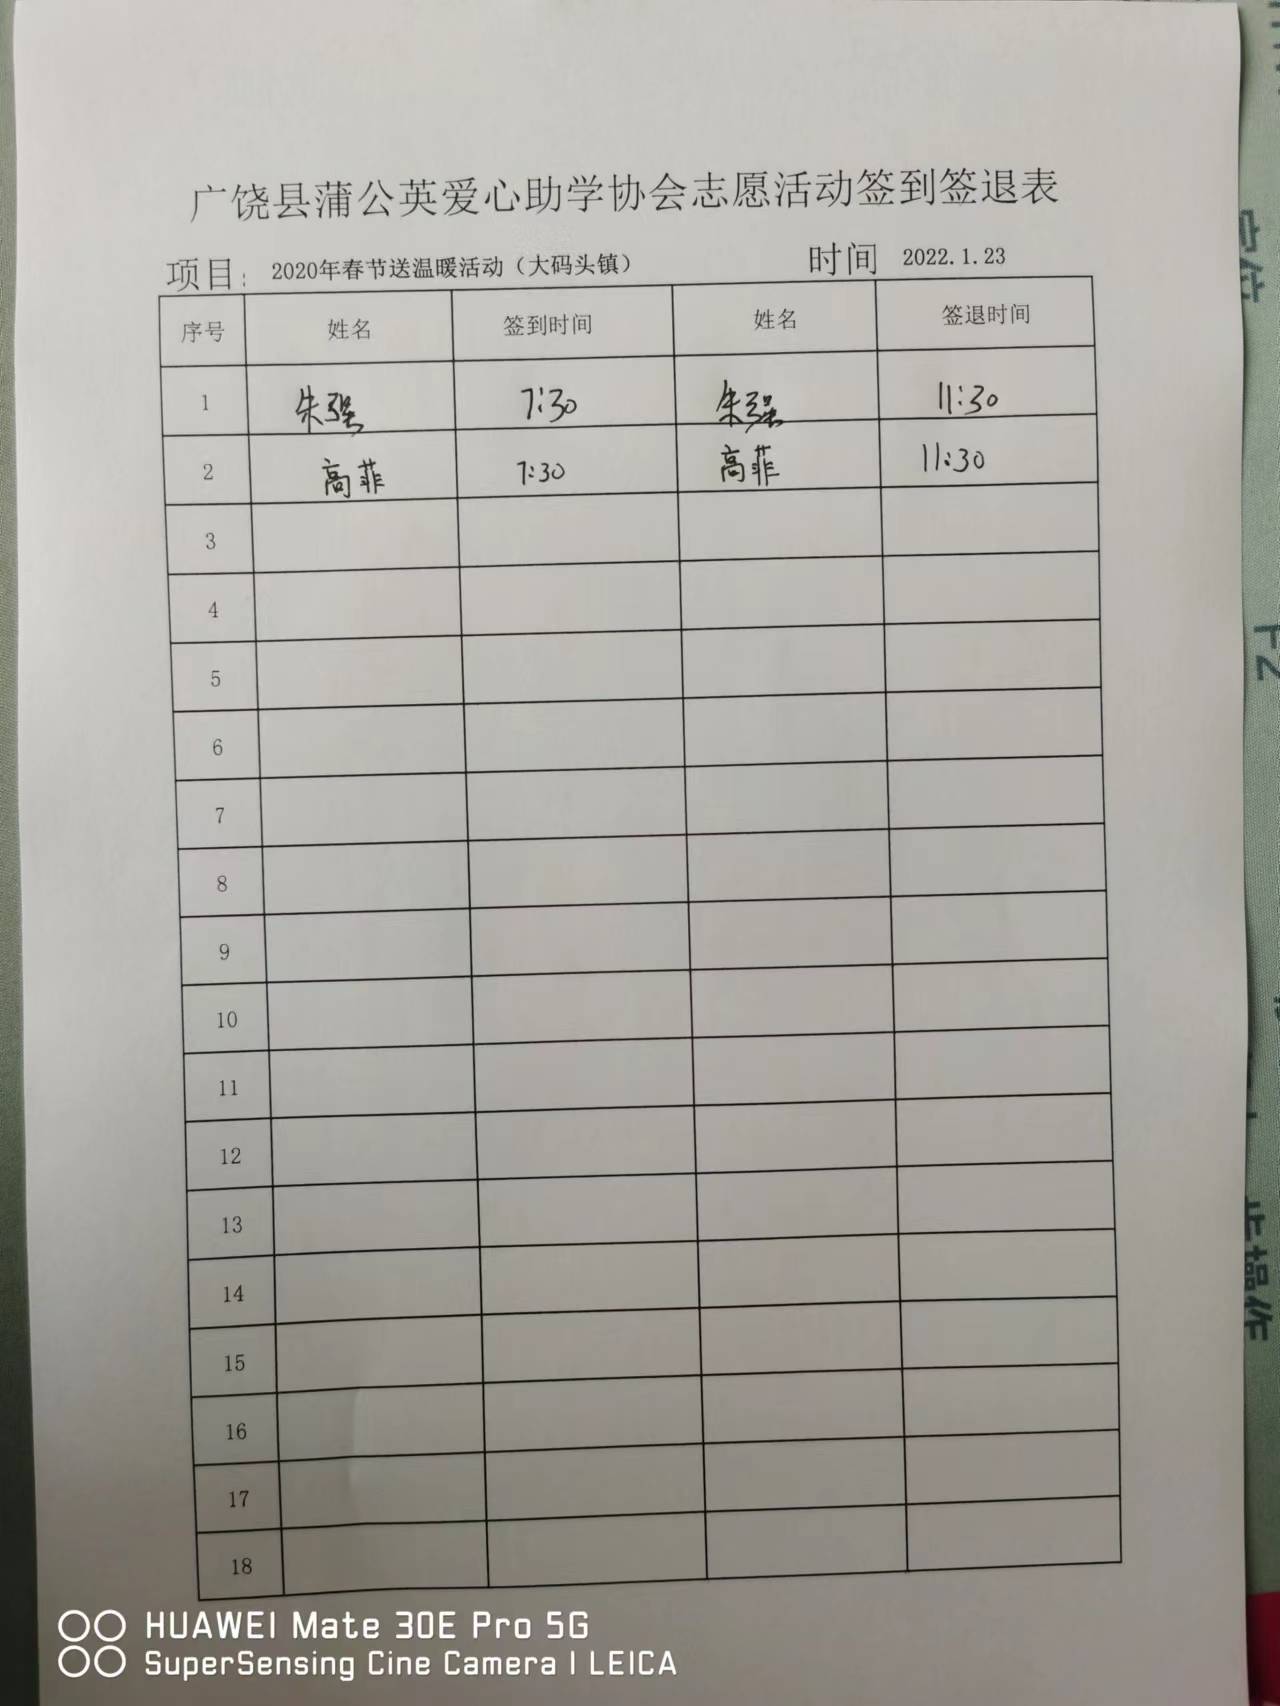 广饶县蒲公英爱心助学协会志愿活动签到签退表
项目: 2020年春节送温暖活动（大码头镇） 时间 2022.1.23
序号 姓名 签到时间 姓名 签退时间
1 朱强 7:30 朱强 11:30
2 高菲 7:30 高菲 11:30
3
4
5
6
7
8
9
10
11
12
13
14
15
16
17
18
HUAWEI Mate 30E Pro 5G
SuperSensing Cine Camera | LEICA
定位
F2
步操作